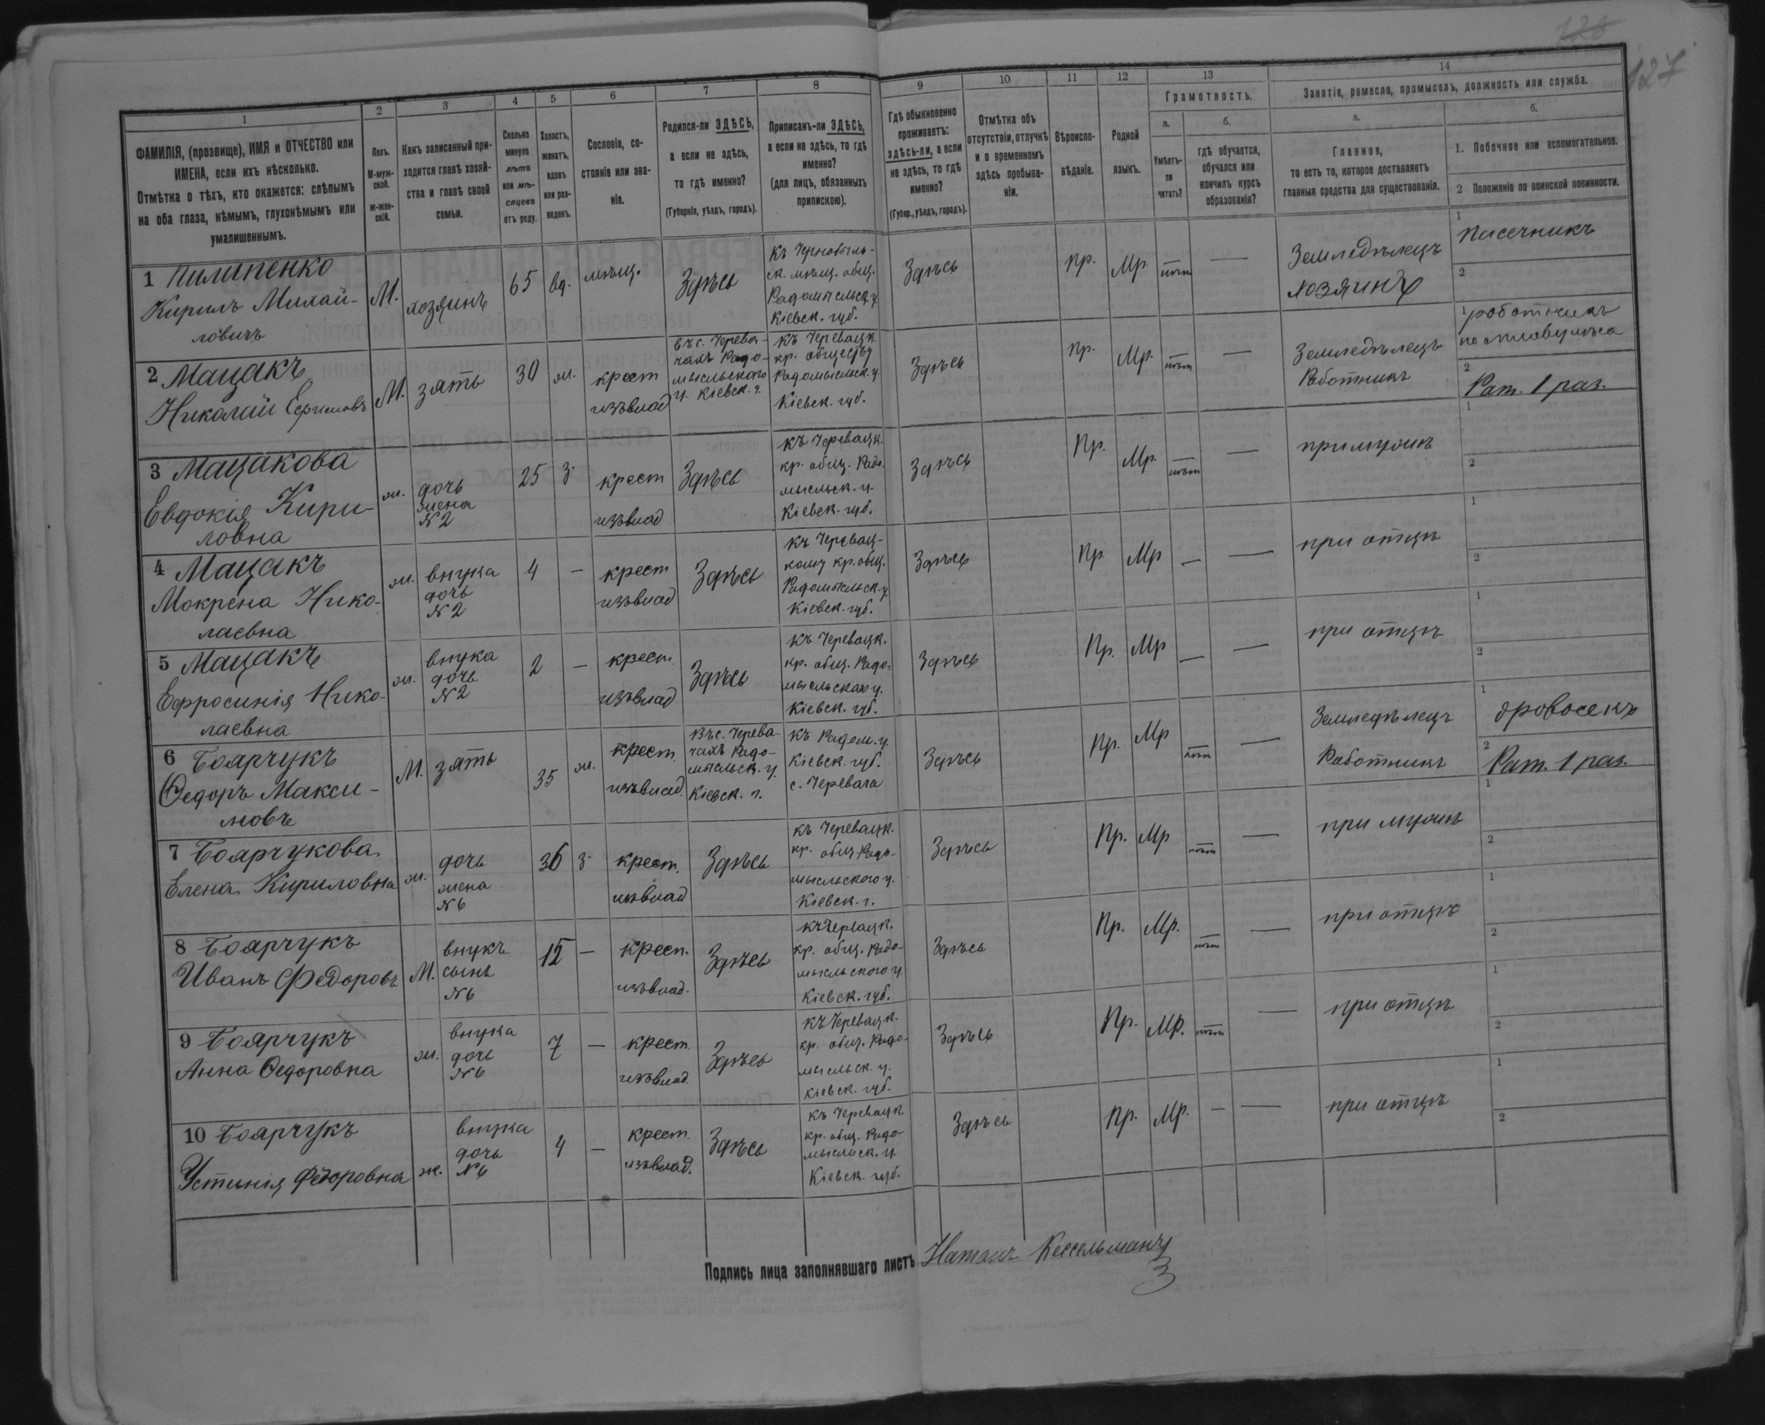 127
1 2 3 4 5 6 7 8 9 10 11 12 13 14
ФАМИЛІЯ, (прозвище), ИМЯ и ОТЧЕСТВО или
ИМЕНА, если ихъ нѣсколько.
Отмѣтка о тѣхъ, кто окажется: слѣпымъ
на оба глаза, нѣмымъ, глухонѣмымъ или
умалишеннымъ.
Полъ.
М-муж-
ской.
ж-жен-
скій.
Какъ записанный при-
ходится главѣ хозяй-
ства и главѣ своей
семьи.
Сколько
минуло
лѣтъ
или мѣ-
сяцевъ
отъ роду.
Холостъ,
женатъ,
вдовъ
или раз-
веденъ.
Сословіе, со-
стояніе или зва-
ніе.
Родился-ли ЗДѢСЬ,
а если не здѣсь,
то гдѣ именно?
(Губернія, уѣздъ, городъ).
Приписанъ-ли ЗДѢСЬ,
а если не здѣсь, то гдѣ
именно?
(для лицъ, обязанныхъ
припискою).
Гдѣ обыкновенно
проживаетъ:
здѣсь-ли, а если
не здѣсь, то гдѣ
именно?
(Губер., уѣздъ, городъ).
Отмѣтка объ
отсутствіи, отлучкѣ
и о временномъ
здѣсь пребыва-
ніи.
Вѣроиспо-
вѣданіе.
Родной
языкъ.
Грамотность.
а.
Умѣетъ-
ли
читать?
б.
гдѣ обучается,
обучался или
кончилъ курсъ
образованія?
Занятіе, ремесло, промыселъ, должность или служба.
а.
Главное,
то есть то, которое доставляетъ
главныя средства для существованія.
б.
1. Побочное или вспомогательное.
2 Положеніе по воинской повинности.
1 Пилипенко
Кирилъ Михай-
ловичъ
М.
хозяинъ
65
вд.
мѣщ.
Здѣсь
къ Чернобыль-
ск. мѣщ. общ.
Радомысльск. у.
Кіевск. губ.
Здѣсь
Пр.
Мр.
нѣтъ
—
Земледѣлецъ
хозяинъ
1 Пасечникъ
2
2 Мацакъ
Николай Ефимовъ
М.
зять
30
ж.
крест
изъ влад
въ с. Черева-
чахъ Радо-
мысльского
у. Кіевск. г.
къ Черевацк.
кр. обществу
Радомысльск. у
Кіевск. губ.
Здѣсь
Пр.
Мр.
нѣтъ
—
Земледѣлецъ
Работникъ
1
2
Рат. 1 раз.
3 Мацакова
Евдокія Кири-
ловна
ж.
дочь
жена
№2
25
з.
крест
изъ влад
Здѣсь
къ Черевацк
кр. общ. Радо-
мысльск. у.
Кіевск. губ.
Здѣсь
Пр.
Мр.
нѣтъ
—
при мужѣ
1
2
4 Мацакъ
Мокрена Нико-
лаевна
ж.
внучка
дочь
№2
4
—
крест
изъ влад
Здѣсь
къ Черевац-
кому кр. общ.
Радомысльск. у
Кіевск. губ.
Здѣсь
Пр.
Мр
—
—
при отцѣ
1
2
5 Мацакъ
Ефросинія Нико-
лаевна
ж.
внука
дочь
№2
2
—
крест.
изъ влад
Здѣсь
къ Черевацк.
кр. общ. Радо-
мысльскаго у.
Кіевск. губ.
Здѣсь
Пр.
Мр
—
—
при отцѣ
1
2
6 Боярчукъ
Ѳедоръ Макси-
мовъ
М.
зять
35
ж.
крест.
изъ влад.
Въ с. Черева-
чахъ Радо-
мысльск. у.
Кіевск. г.
къ Радом. у.
Кіевск. губ.
с. Черевача
Здѣсь
Пр.
Мр
нѣтъ
—
Земледѣлецъ
Работникъ
1
дровосекъ
2
Рат. 1 раз.
7 Боярчукова
Елена Кириловна
ж.
дочь
жена
№6
36
з.
крест.
изъ влад
Здѣсь
къ Черевацк.
кр. общ. Радо-
мысльского у.
Кіевск. г.
Здѣсь
Пр.
Мр
нѣтъ
—
при мужѣ
1
2
8 Боярчукъ
Иванъ Федоровъ
М.
внукъ
сынъ
№6
12
—
крест.
изъ влад.
Здѣсь
къ Черевацк.
кр. общ. Радо-
мысльского у
Кіевск. губ.
Здѣсь
Пр.
Мр.
нѣтъ
—
при отцѣ
1
2
9 Боярчукъ
Анна Ѳедоровна
ж.
внучка
дочь
№6
7
—
крест.
изъ влад.
Здѣсь
къ Черевацк.
кр. общ. Радо-
мысльск. у.
Кіевск. губ.
Здѣсь
Пр.
Мр.
нѣтъ
—
при отцѣ
1
2
10 Боярчукъ
Устинія Федоровна
ж.
внучка
дочь
№6
4
—
крест.
изъ влад.
Здѣсь
къ Черевацк.
кр. общ. Радо-
мысльск. у.
Кіевск. губ.
Здѣсь
Пр.
Мр.
—
—
при отцѣ
1
2
Подпись лица заполнявшаго листъ Натанъ Кессельманъ